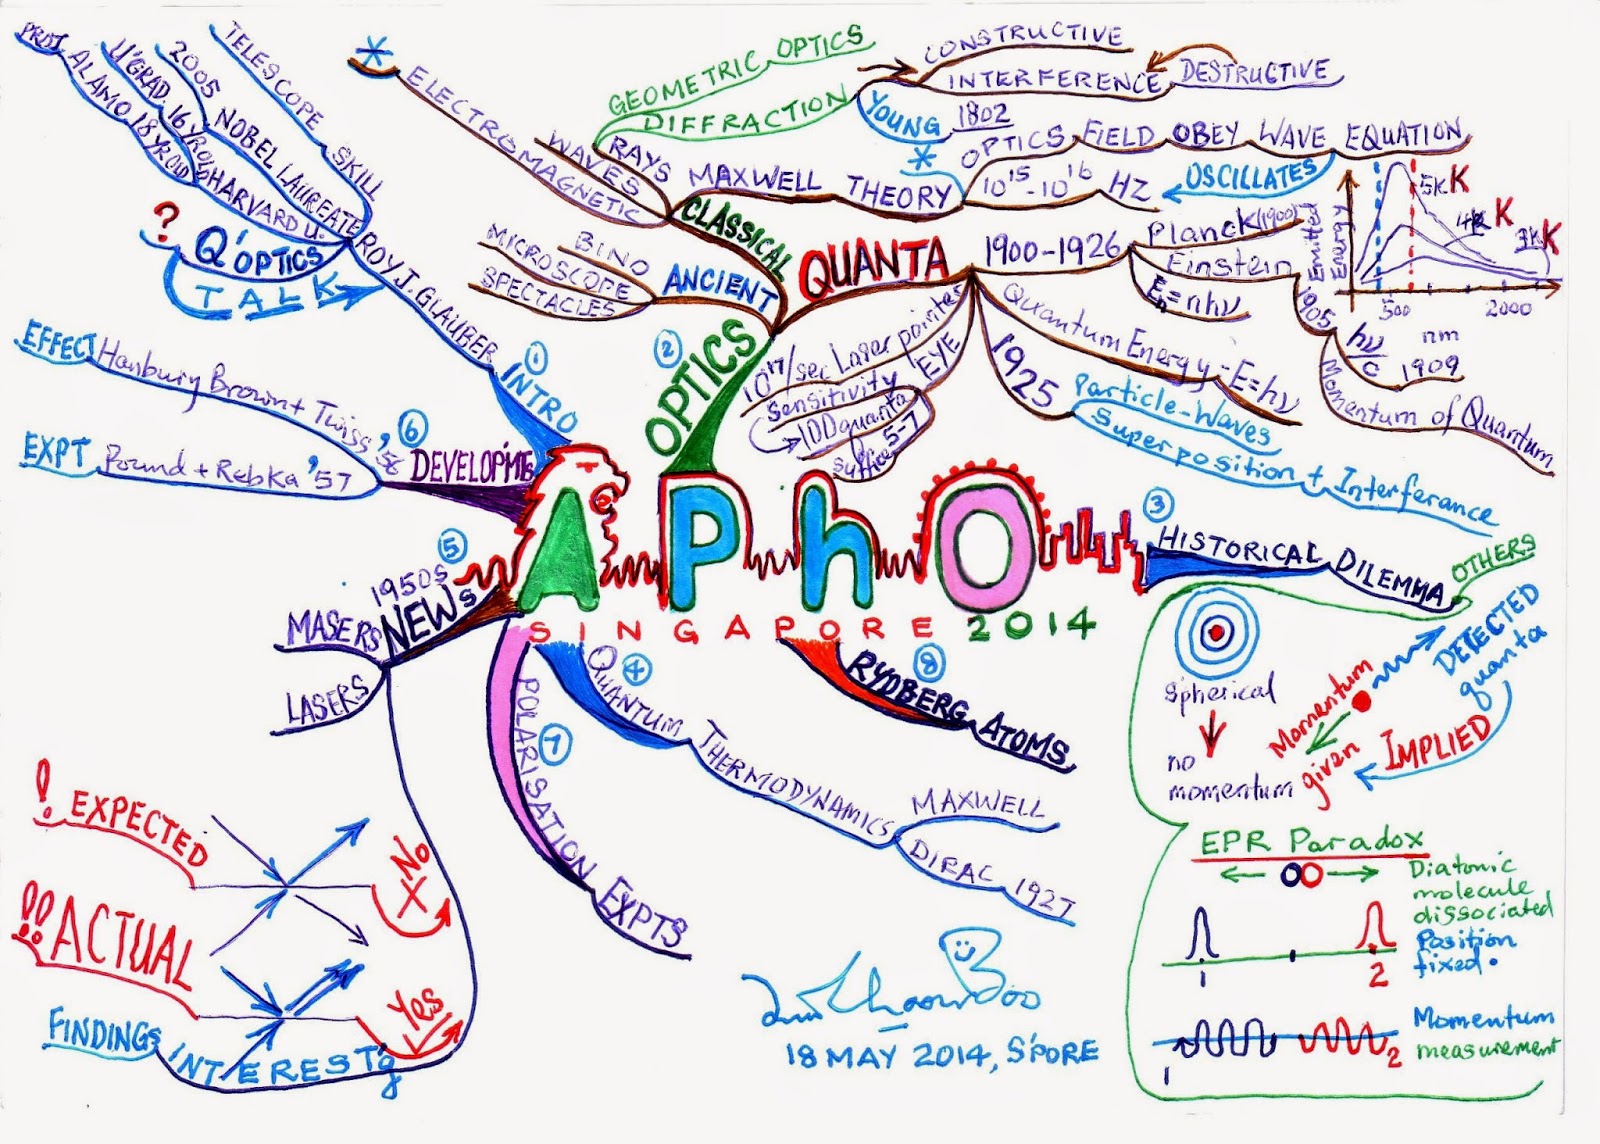 APhO
SINGAPORE 2014
① INTRO
ROY J. GLAUBER
TELESCOPE SKILL
2005 NOBEL LAUREATE
U'GRAD. 16 YROLD HARVARD U.
PROJ ALAMO 18 YROLD
? Q'OPTICS
TALK
② OPTICS
ANCIENT
BINO
MICROSCOPE
SPECTACLES
CLASSICAL
* ELECTROMAGNETIC
WAVES
RAYS
GEOMETRIC OPTICS
DIFFRACTION
YOUNG 1802
CONSTRUCTIVE
INTERFERENCE
DESTRUCTIVE
MAXWELL THEORY *
OPTICS FIELD OBEY WAVE EQUATION
OSCILLATES
10^15-10^16 HZ
QUANTA
1900-1926
Planck (1900)
Einstein
En=nhν
1905
hν/c 1909
Momentum of Quantum
Quantum Energy - E=hν
1925
Particle-Waves
Superposition + Interferance
EYE
10^17/sec Laser pointer
Sensitivity
100 quanta
5-7
suffice
Emitted
Energy
5K K
4K K
3K K
500
2000
nm
③ HISTORICAL DILEMMA
OTHERS
Spherical
no
momentum
Momentum
given
DETECTED
quanta
IMPLIED
EPR Paradox
Diatonic
molecule
dissociated
Position
fixed.
1
2
Momentum
measurement
1
2
④ QUANTUM THERMODYNAMICS
MAXWELL
DIRAC 1927
⑤ NEWs
1950s
MASERS
LASERS
! EXPECTED
No
X
!! ACTUAL
Yes
FINDINGS INTEREST'g
⑥ DEVELOPMTs
EFFECT Hanbury Brown + Twiss '56
EXPT Pound + RebKa '57
⑦ POLARISATION EXPTS
⑧ RYDBERG ATOMS
18 MAY 2014, S'PORE